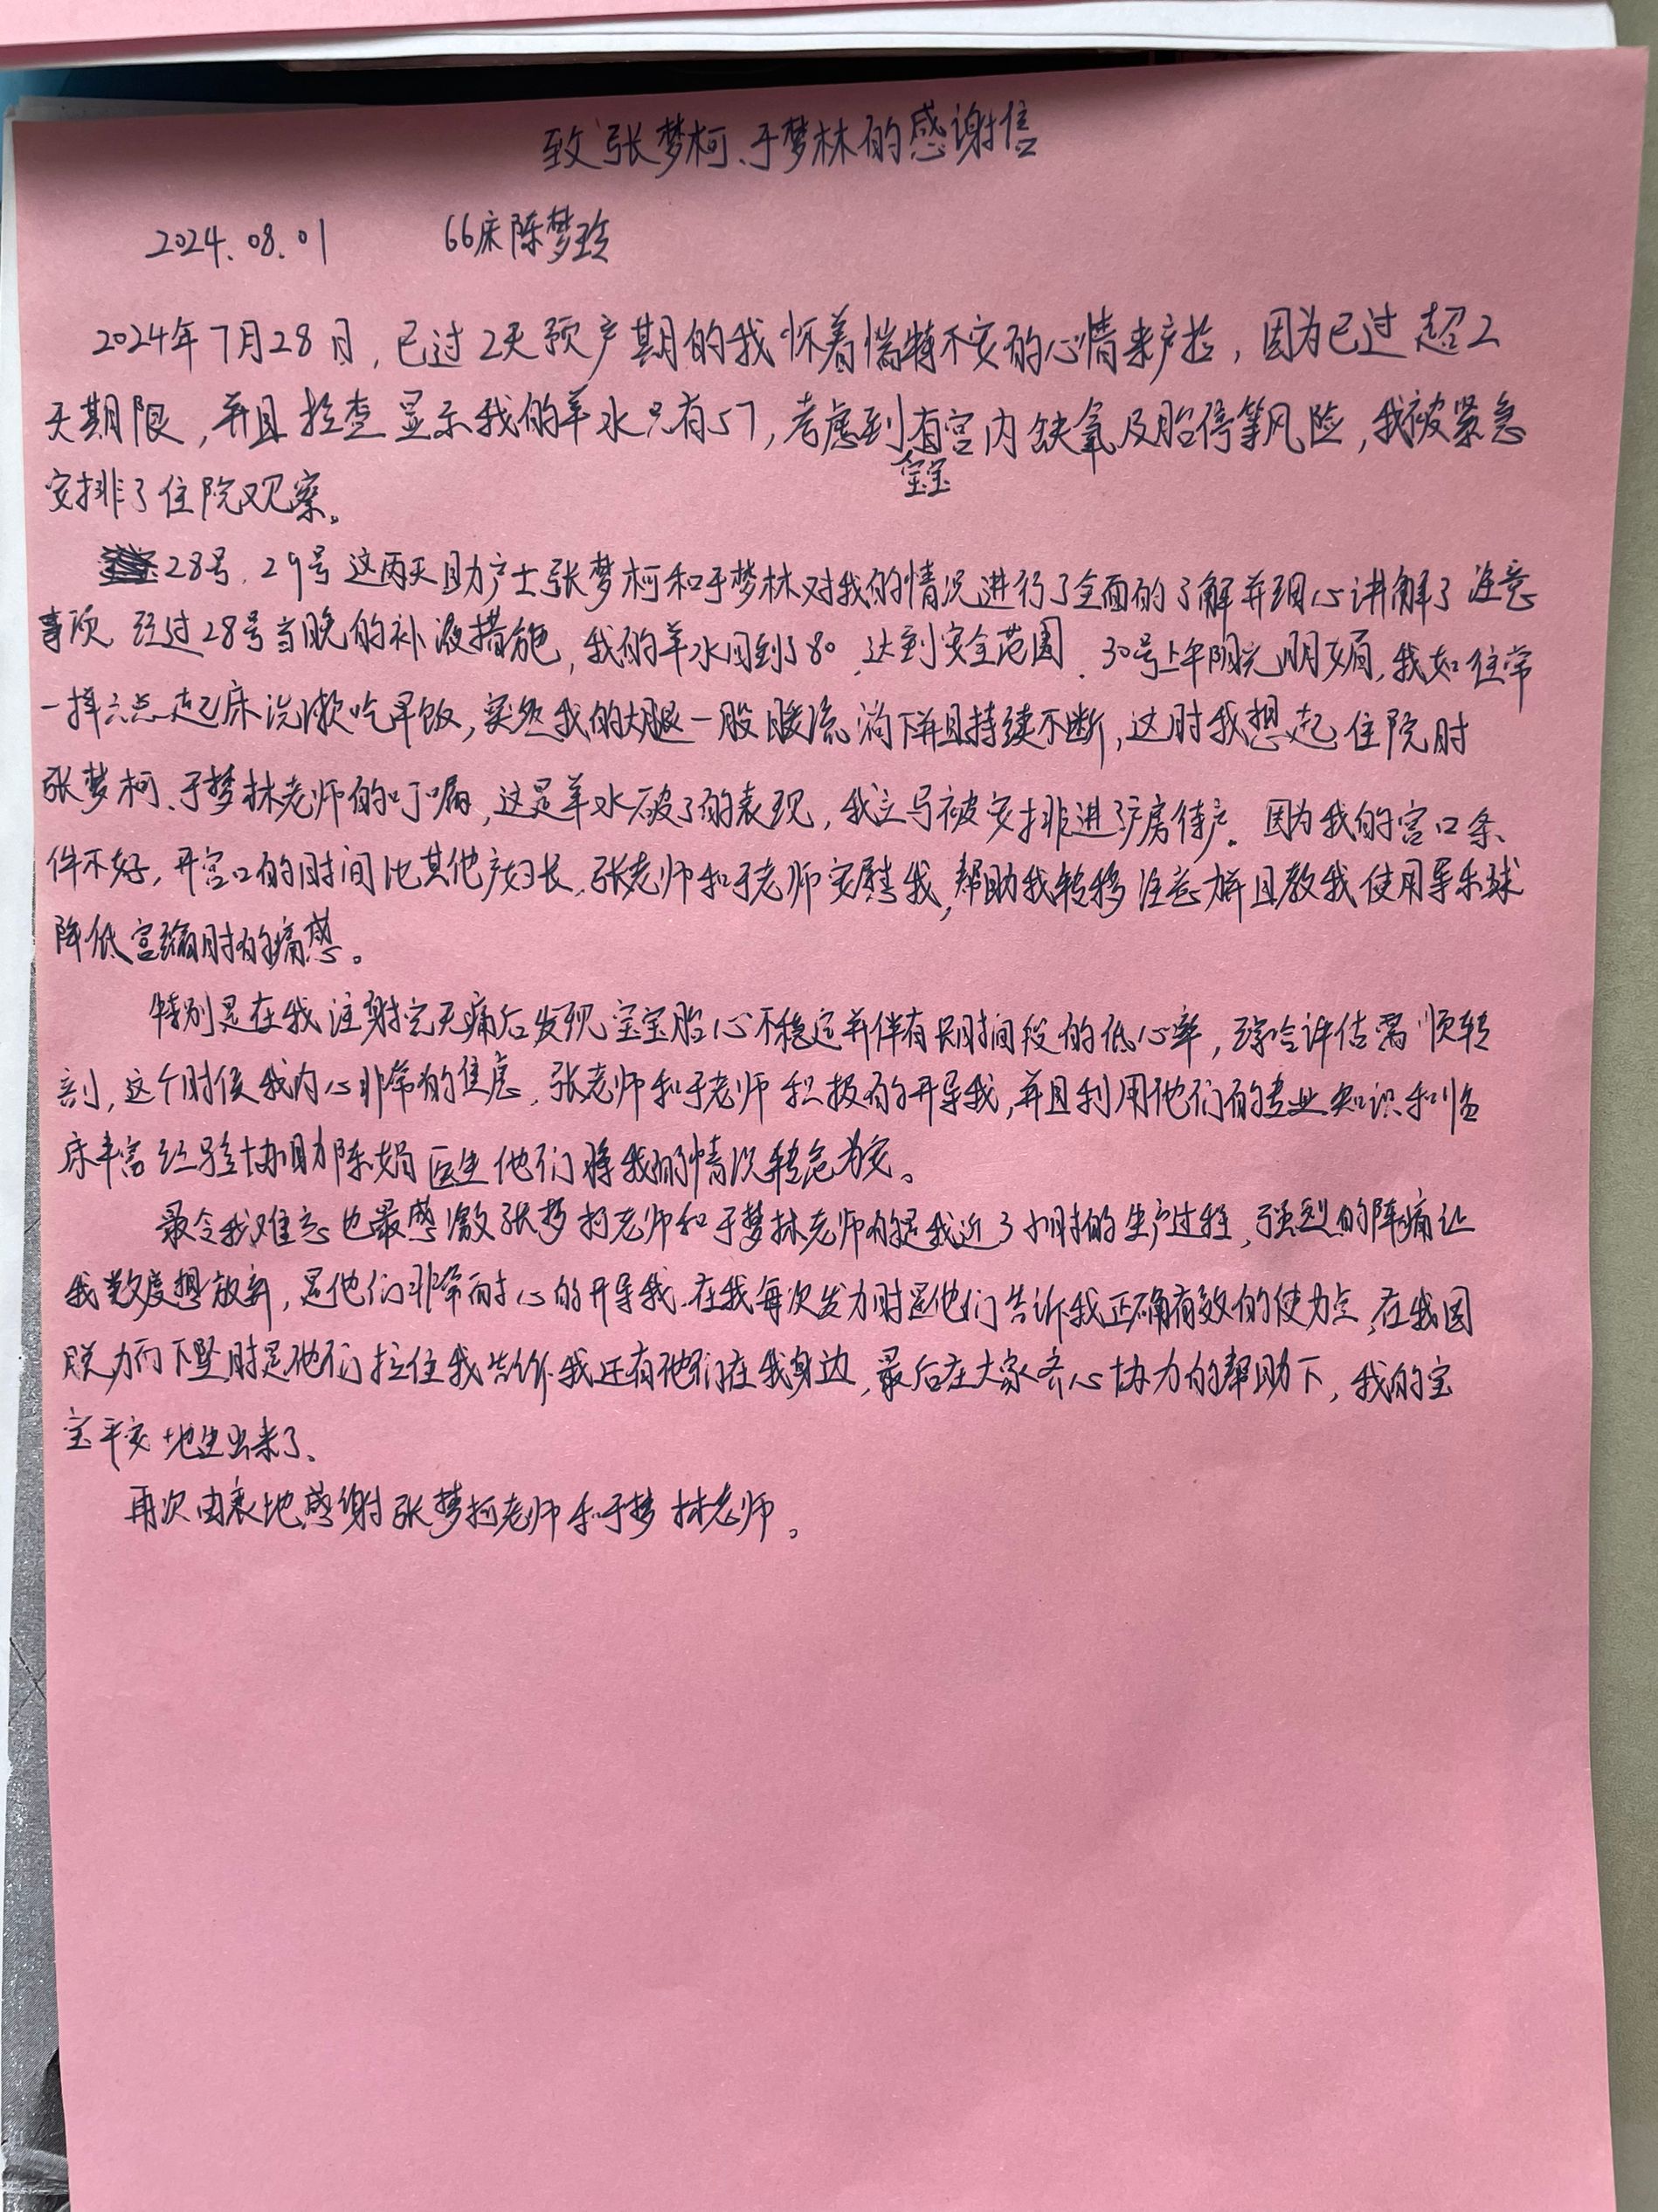 致张梦柯、于梦林的感谢信
2024.08.01 66床陈梦玲
2024年7月28日,已过2天预产期的我怀着惴特不安的心情来产检,因为已过超2
天期限,并且检查显示我的羊水只有57,考虑到宝宝有宫内缺氧及胎停等风险,我被紧急
安排了住院观察。
28号、29号这两天助产士张梦柯和于梦林对我的情况进行了全面的了解并细心讲解了注意
事项 经过28号当晚的补液措施,我的羊水回到了80,达到安全范围.30号上午阳光明媚,我如往常
一样六点起床洗漱吃早饭,突然我的大腿一股暖流淌下并且持续不断,这时我想起住院时
张梦柯、于梦林老师的叮嘱,这是羊水破了的表现,我立马被安排进产房待产.因为我的宫口条
件不好,开宫口的时间比其他产妇长,张老师和于老师安慰我,帮助我转移注意力并且教我使用导乐球
降低宫缩时的痛感。
特别是在我注射完无痛后发现宝宝胎心不稳定并伴有长时间段的低心率,综合评估需顺转
剖,这个时候我内心非常的焦虑,张老师和于老师积极的开导我,并且利用他们的专业知识和临
床丰富经验协助陈娟医生他们将我的情况转危为安。
最令我难忘也最感激张梦柯老师和于梦林老师的是我近3小时的生产过程,强烈的阵痛让
我数度想放弃,是他们非常耐心的开导我.在我每次发力时是他们告诉我正确有效的使力点,在我因
脱力而下坠时是他们拉住我告诉我还有他们在我身边,最后在大家齐心协力的帮助下,我的宝
宝平安地生出来了、
再次由衷地感谢张梦柯老师和于梦林老师。